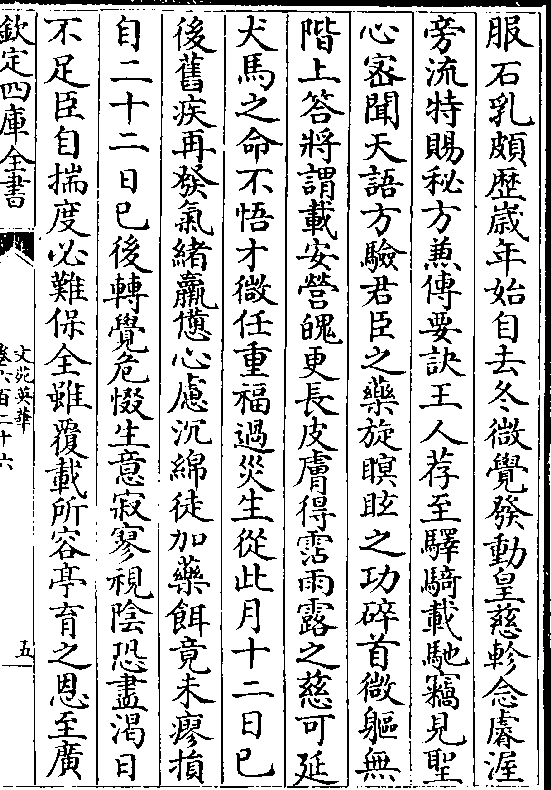 服石乳頗歴歳年始自去冬微覺發動皇慈軫念睿渥
旁流特賜秘方兼傳要訣王人荐至驛騎載馳竊見聖
心密聞天語方驗君臣之藥旋瞑眩之功碎首微軀無
階上答將謂載安營魄更長皮膚得霑雨露之慈可延
犬馬之命不悟才微任重福過災生從此月十二日已
後舊疾再發氣緒羸憊心慮沉綿徒加藥餌竟未瘳損
自二十二日已後轉覺危惙生意寂寥視陰恐盡渴日
不足臣自揣度必難保全雖覆載所容亭育之恩至廣
欽定四庫全書
文苑英華
卷六百二十六
五